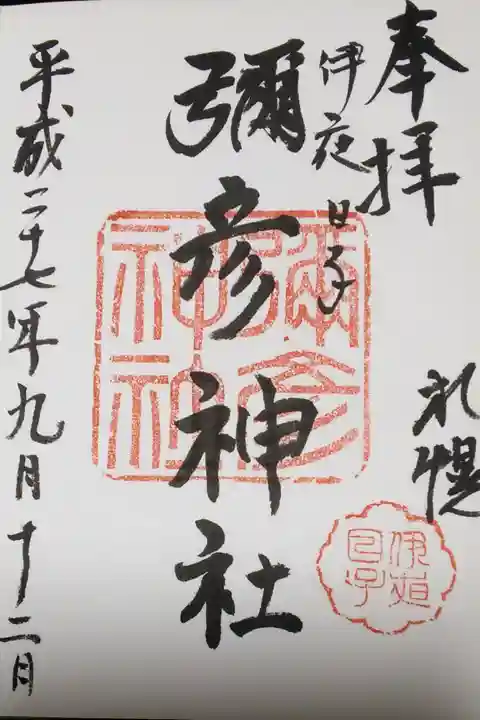 奉拝
札幌
伊夜日子
彌彦神社
平成二十七年九月十二日
彌彦神社